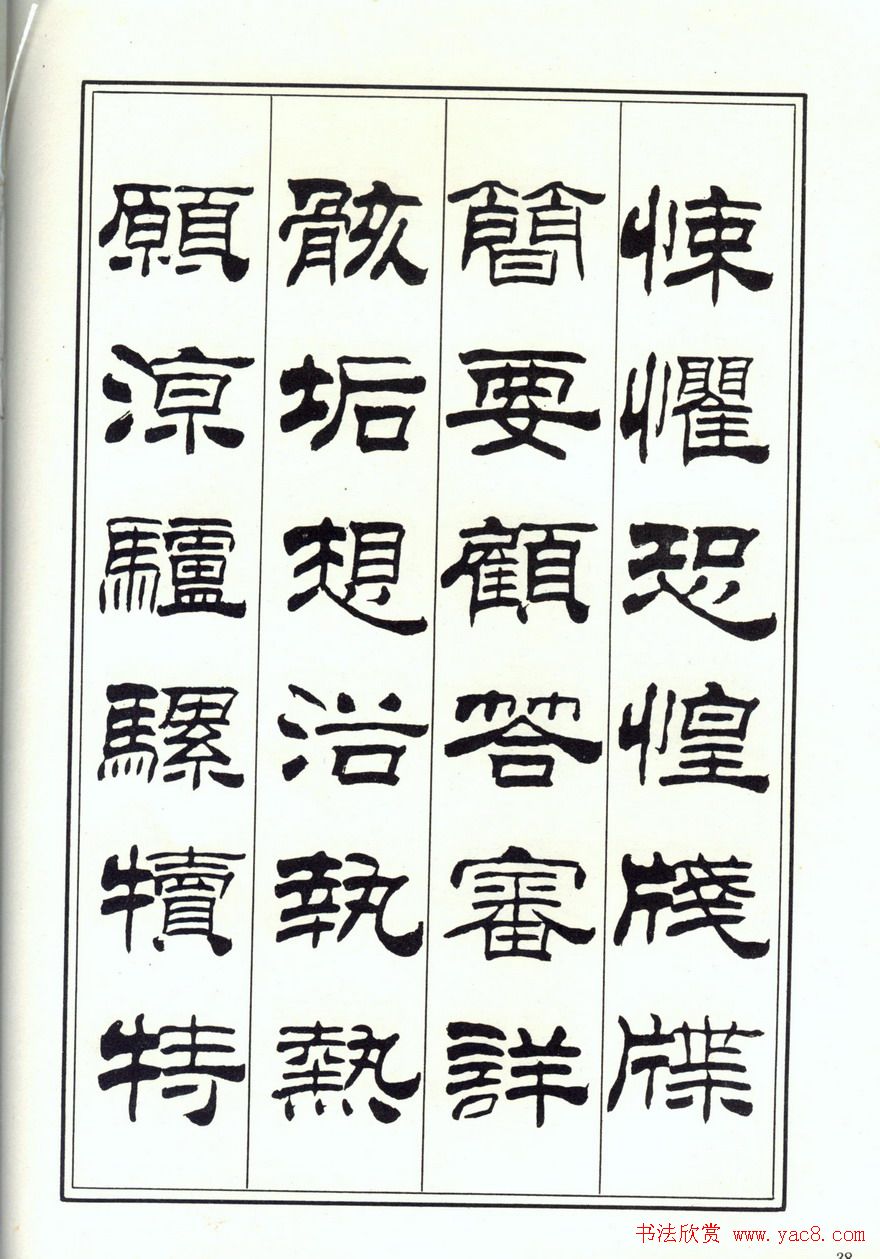 悚懼恐惶牋牒
簡要顧答審詳
骸垢想浴執熱
願涼驢騾犢特
书法欣赏 www.yac8.com
38